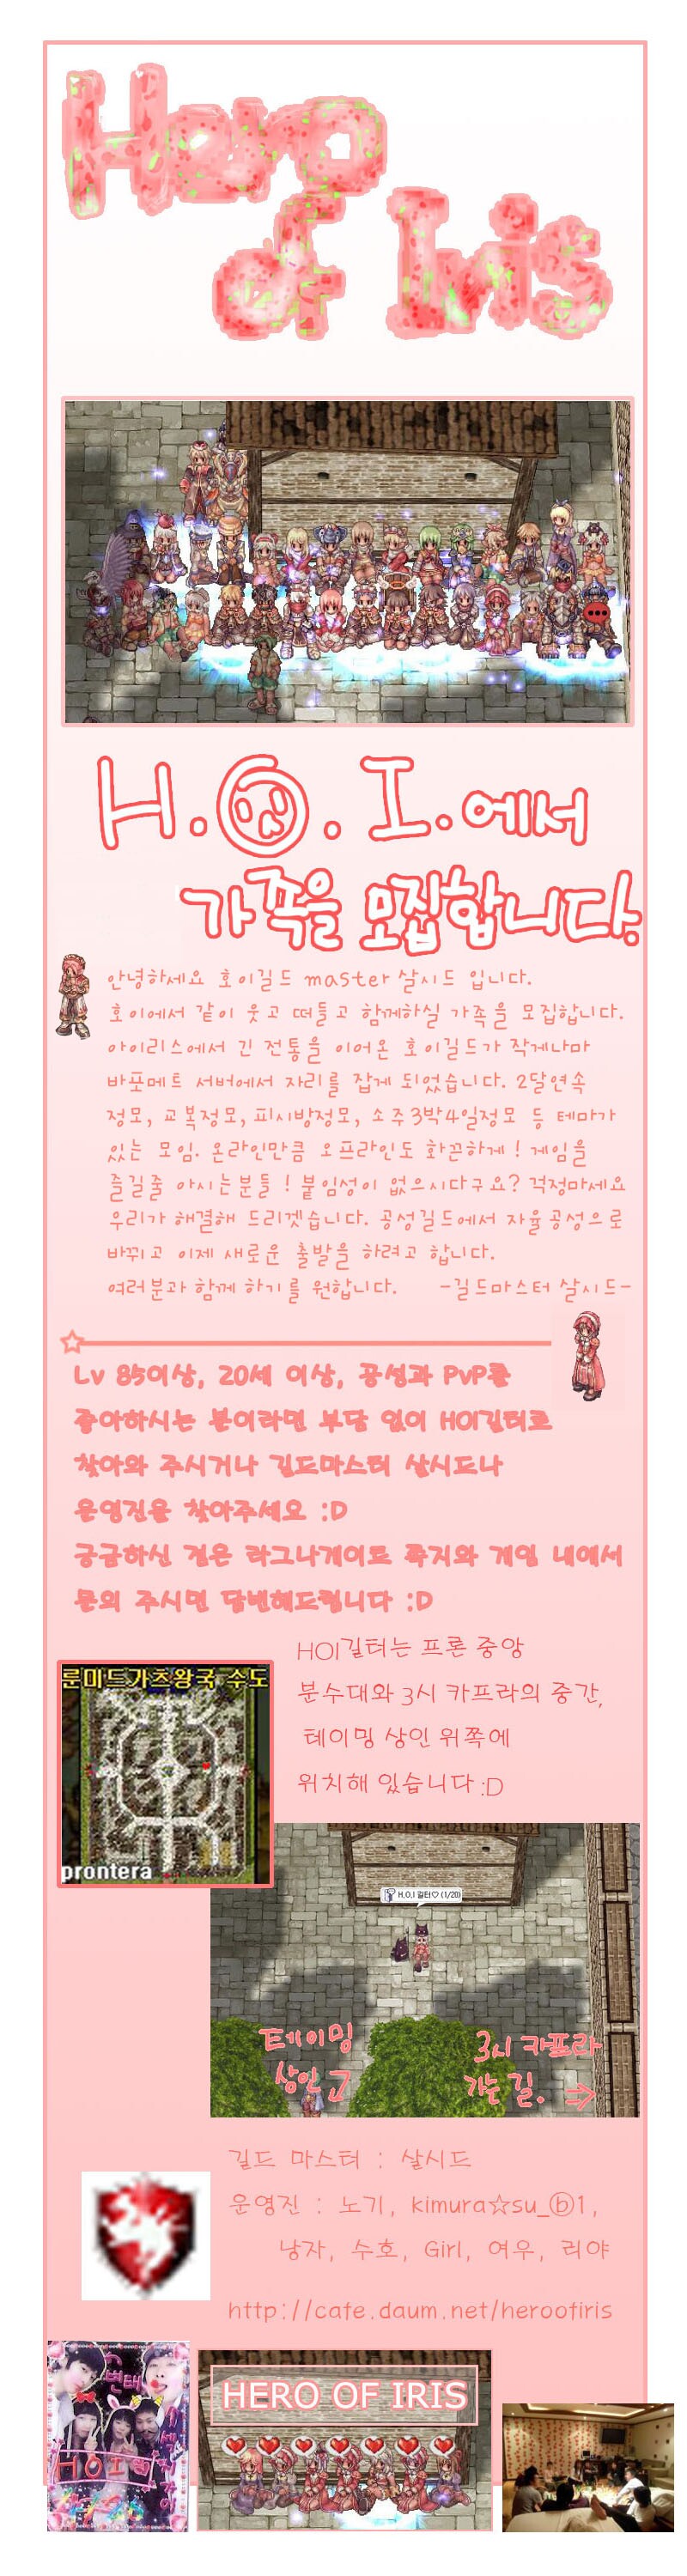 Hero
of Iris
H.O.I.에서
가족을 모집합니다.
안녕하세요 호이길드 master 살시드 입니다.
호이에서 같이 웃고 떠들고 함께하실 가족을 모집합니다.
아이리스에서 긴 전통을 이어온 호이길드가 작게나마
바포메트 서버에서 자리를 잡게 되었습니다. 2달연속
정모, 교복정모, 피시방정모, 소주3박4일정모 등 테마가
있는 모임. 온라인만큼 오프라인도 화끈하게! 게임을
즐길줄 아시는분들! 붙임성이 없으시다구요? 걱정마세요
우리가 해결해 드리겟습니다. 공성길드에서 자율공성으로
바뀌고 이제 새로운 출발을 하려고 합니다.
여러분과 함께 하기를 원합니다. -길드마스터 살시드-
Lv 85이상, 20세 이상, 공성과 PvP를
좋아하시는 분이라면 부담 없이 HOI길터로
찾아와 주시거나 길드마스터 살시드나
운영진을 찾아주세요 :D
궁금하신 점은 라그나게이트 쪽지와 게임 내에서
문의 주시면 답변해드립니다 :D
HOI길터는 프론 중앙
분수대와 3시 카프라의 중간,
테이밍 상인 위쪽에
위치해 있습니다 :D
룬미드가츠왕국 수도
prontera
H.O.I 길터♡ (1/20)
테이밍
상인
3시 카프라
가는 길. ⇒
길드 마스터 : 살시드
운영진 : 노기, kimura☆su_ⓑ1,
낭자, 수호, Girl, 여우, 리야
http://cafe.daum.net/heroofiris
변태
HOI
HERO OF IRIS